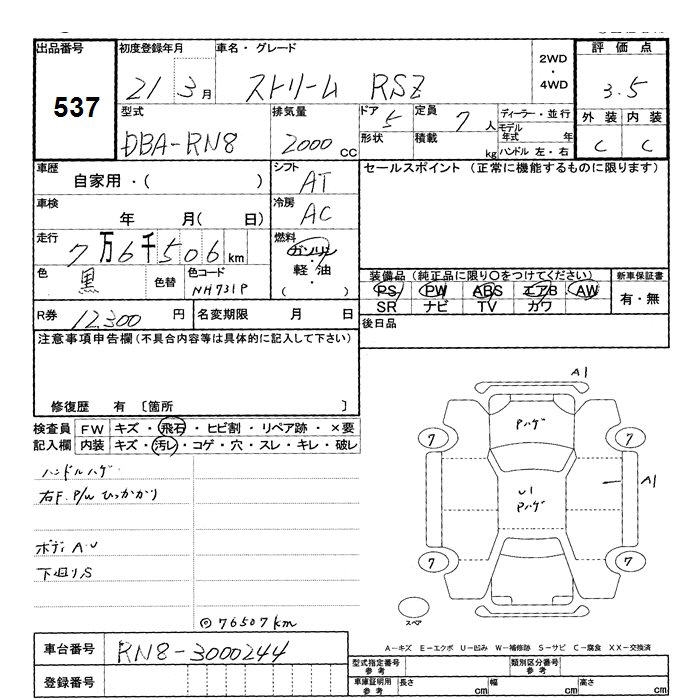 出品番号 初度登録年月 車名・グレード 2WD・4WD 評価点
537 21 3月 ストリーム RSZ 3.5
型式 排気量 ドア 5 定員 7人 ディーラー・並行 外装 内装
DBA-RN8 2000cc 形状 積載 kg モデル年式 年 C C
ハンドル 左・右
車歴 自家用・( ) シフト AT セールスポイント (正常に機能するものに限ります)
車検 年 月( 日) 冷房 AC
走行 7万6千506km 燃料 ガソリン・軽油 ( )
色 黒 色替 色コード NH731P 装備品 (純正品に限り○をつけてください) 新車保証書
PS PW ABS エアB AW 有・無
SR ナビ TV カワ
R券 12,300円 名変期限 月 日 後日品
注意事項申告欄(不具合内容等は具体的に記入して下さい)
修復歴 有 〔箇所 〕
A1
Pハゲ
検査員 FW キズ・飛石・ヒビ割・リペア跡・×要
記入欄 内装 キズ・汚レ・コゲ・穴・スレ・キレ・破レ
7 7
ハンドルハゲ
右F.P/W ひっかかり
A1
U1
Pハゲ
ボディ A.U
下廻リS
7 7
◎76507km
スペア
車台番号 RN8-3000244
A-キズ E-エクボ U-凹み W-補修跡 S-サビ C-腐食 XX-交換済
登録番号
型式指定番号 参考 類別区分番号 参考
車庫証明用 参考 長さ cm 幅 cm 高さ cm